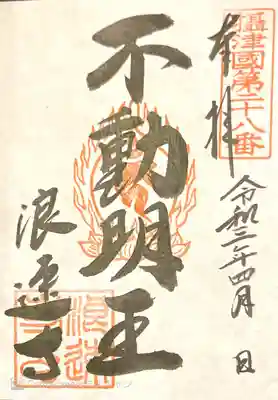 攝津國第二十八番
奉拝
不動明王
令和三年四月 日
浪速寺